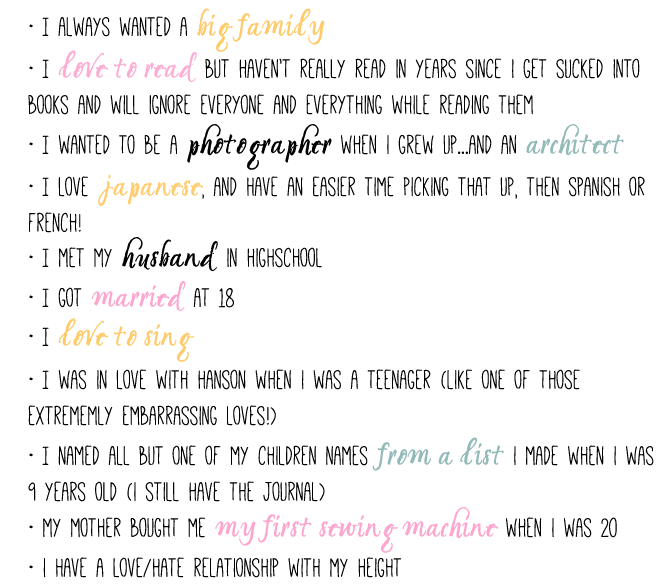 · I ALWAYS WANTED A big family
· I love to read BUT HAVEN'T REALLY READ IN YEARS SINCE I GET SUCKED INTO
BOOKS AND WILL IGNORE EVERYONE AND EVERYTHING WHILE READING THEM
· I WANTED TO BE A photographer WHEN I GREW UP...AND AN architect
· I LOVE japanese, AND HAVE AN EASIER TIME PICKING THAT UP, THEN SPANISH OR
FRENCH!
· I MET MY husband IN HIGHSCHOOL
· I GOT married AT 18
· I love to sing
· I WAS IN LOVE WITH HANSON WHEN I WAS A TEENAGER (LIKE ONE OF THOSE
EXTREMEMLY EMBARRASSING LOVES!)
· I NAMED ALL BUT ONE OF MY CHILDREN NAMES from a list I MADE WHEN I WAS
9 YEARS OLD (I STILL HAVE THE JOURNAL)
· MY MOTHER BOUGHT ME my first sewing machine WHEN I WAS 20
· I HAVE A LOVE/HATE RELATIONSHIP WITH MY HEIGHT